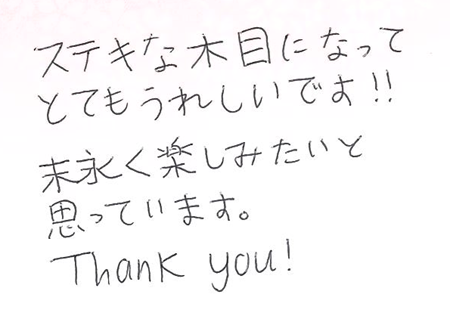 ステキな木目になって
とてもうれしいです!!
末永く楽しみたいと
思っています。
Thank you!